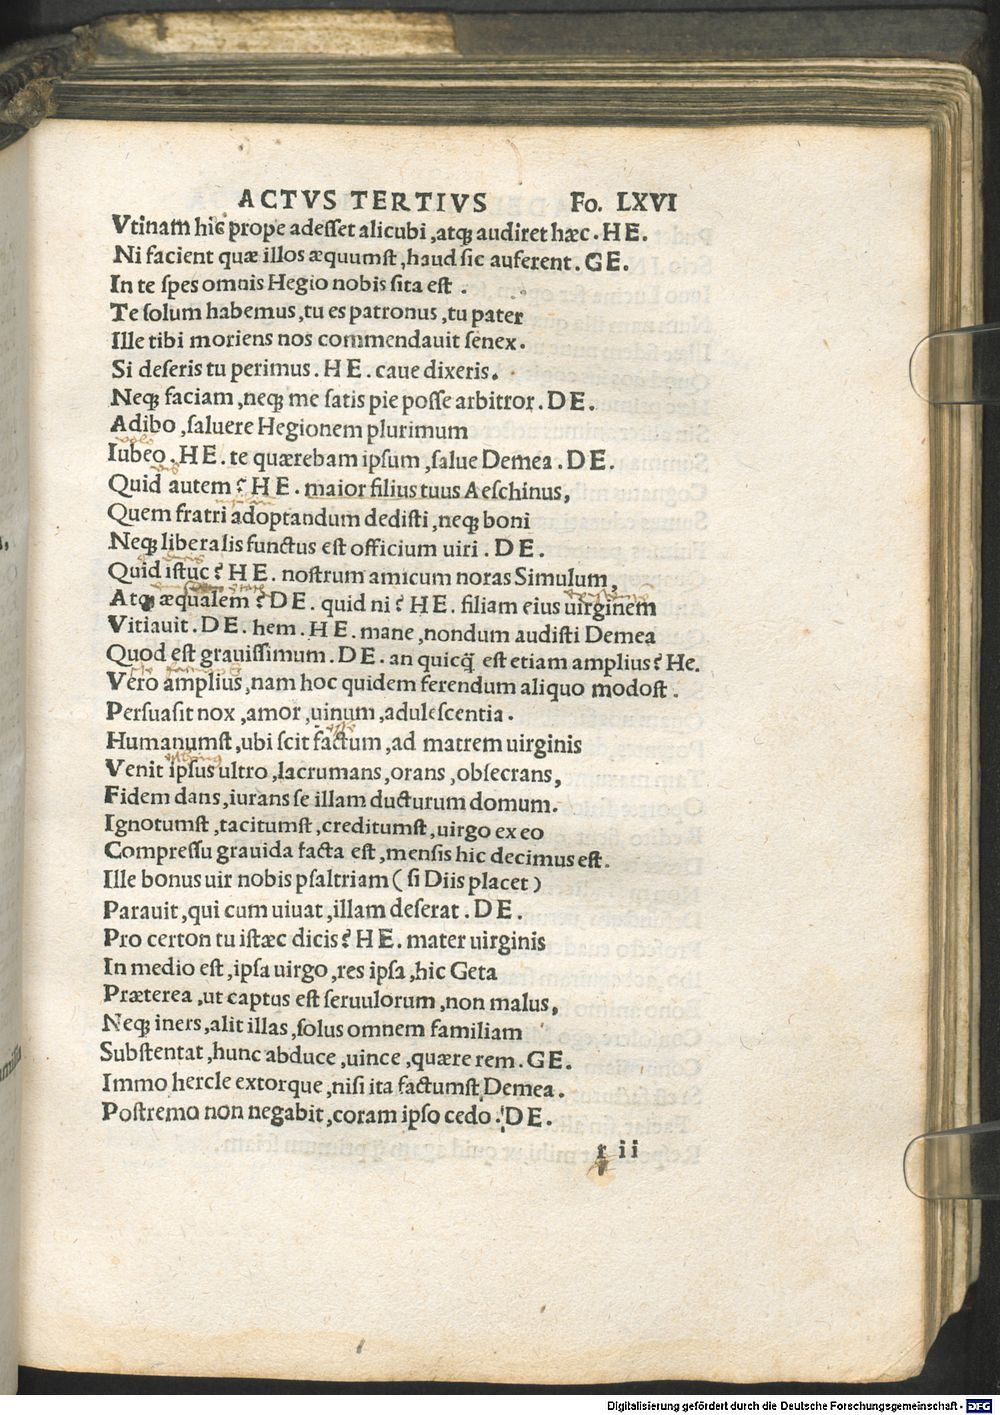 ACTVS TERTIVS Fo. LXVI
Vtinam hic prope adesset alicubi, atq; audiret hæc. HE.
Ni facient quæ illos æquumst, haud sic auferent. GE.
In te spes omnis Hegio nobis sita est.
Te solum habemus, tu es patronus, tu pater
Ille tibi moriens nos commendauit senex.
Si deseris tu perimus. HE. caue dixeris.
Neq; faciam, neq; me satis pie posse arbitror. DE.
Adibo, saluere Hegionem plurimum
volo
Iubeo. HE. te quærebam ipsum, salue Demea. DE.
Quid autem? HE. maior filius tuus Aeschinus,
Quem fratri adoptandum dedisti, neq; boni
Neq; liberalis functus est officium uiri. DE.
Quid istuc? HE. nostrum amicum noras Simulum,
Atq; æqualem? DE. quid ni? HE. filiam eius uirginem
Vitiauit. DE. hem. HE. mane, nondum audisti Demea
Quod est grauissimum. DE. an quicq̃ est etiam amplius? He.
Vero amplius, nam hoc quidem ferendum aliquo modost.
Persuasit nox, amor, uinum, adulescentia.
Humanumst, ubi scit factum, ad matrem uirginis
Venit ipsus ultro, lacrumans, orans, obsecrans,
Fidem dans, iurans se illam ducturum domum.
Ignotumst, tacitumst, creditumst, uirgo ex eo
Compressu grauida facta est, mensis hic decimus est.
Ille bonus uir nobis psaltriam (si Diis placet)
Parauit, qui cum uiuat, illam deserat. DE.
Pro certon tu istæc dicis? HE. mater uirginis
In medio est, ipsa uirgo, res ipsa, hic Geta
Præterea, ut captus est seruulorum, non malus,
Neq; iners, alit illas, solus omnem familiam
Substentat, hunc abduce, uince, quære rem. GE.
Immo hercle extorque, nisi ita factumst Demea.
Postremo non negabit, coram ipso cedo. DE.
r ii
Digitalisierung gefördert durch die Deutsche Forschungsgemeinschaft - DFG